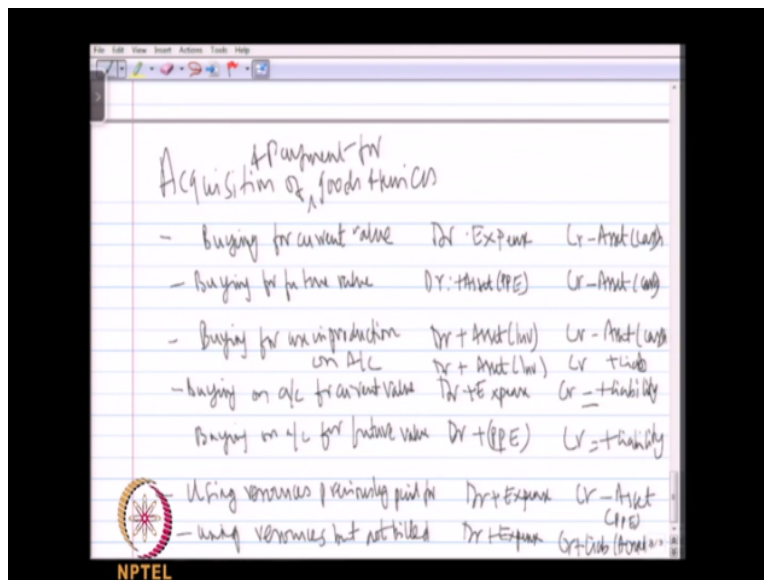 File Edit View Insert Actions Tools Help
+ Payment for
Acquisition of goods + services
- Buying for current value Dr. Expense Cr - Asset (cash)
- Buying for future value Dr. + Asset (PPE) Cr - Asset (cash)
- Buying for use in production Dr + Asset (Inv) Cr - Asset (cash
on A/c Dr + Asset (Inv) Cr + Liab
- Buying on a/c for current value Dr + Expense Cr = + liability
Buying on a/c for future value Dr + (PPE) Cr = + liability
- Using resources previously paid for Dr + Expense Cr - Asset
(PPE)
- using resources but not billed Dr + Expense Cr + Liab
NPTEL